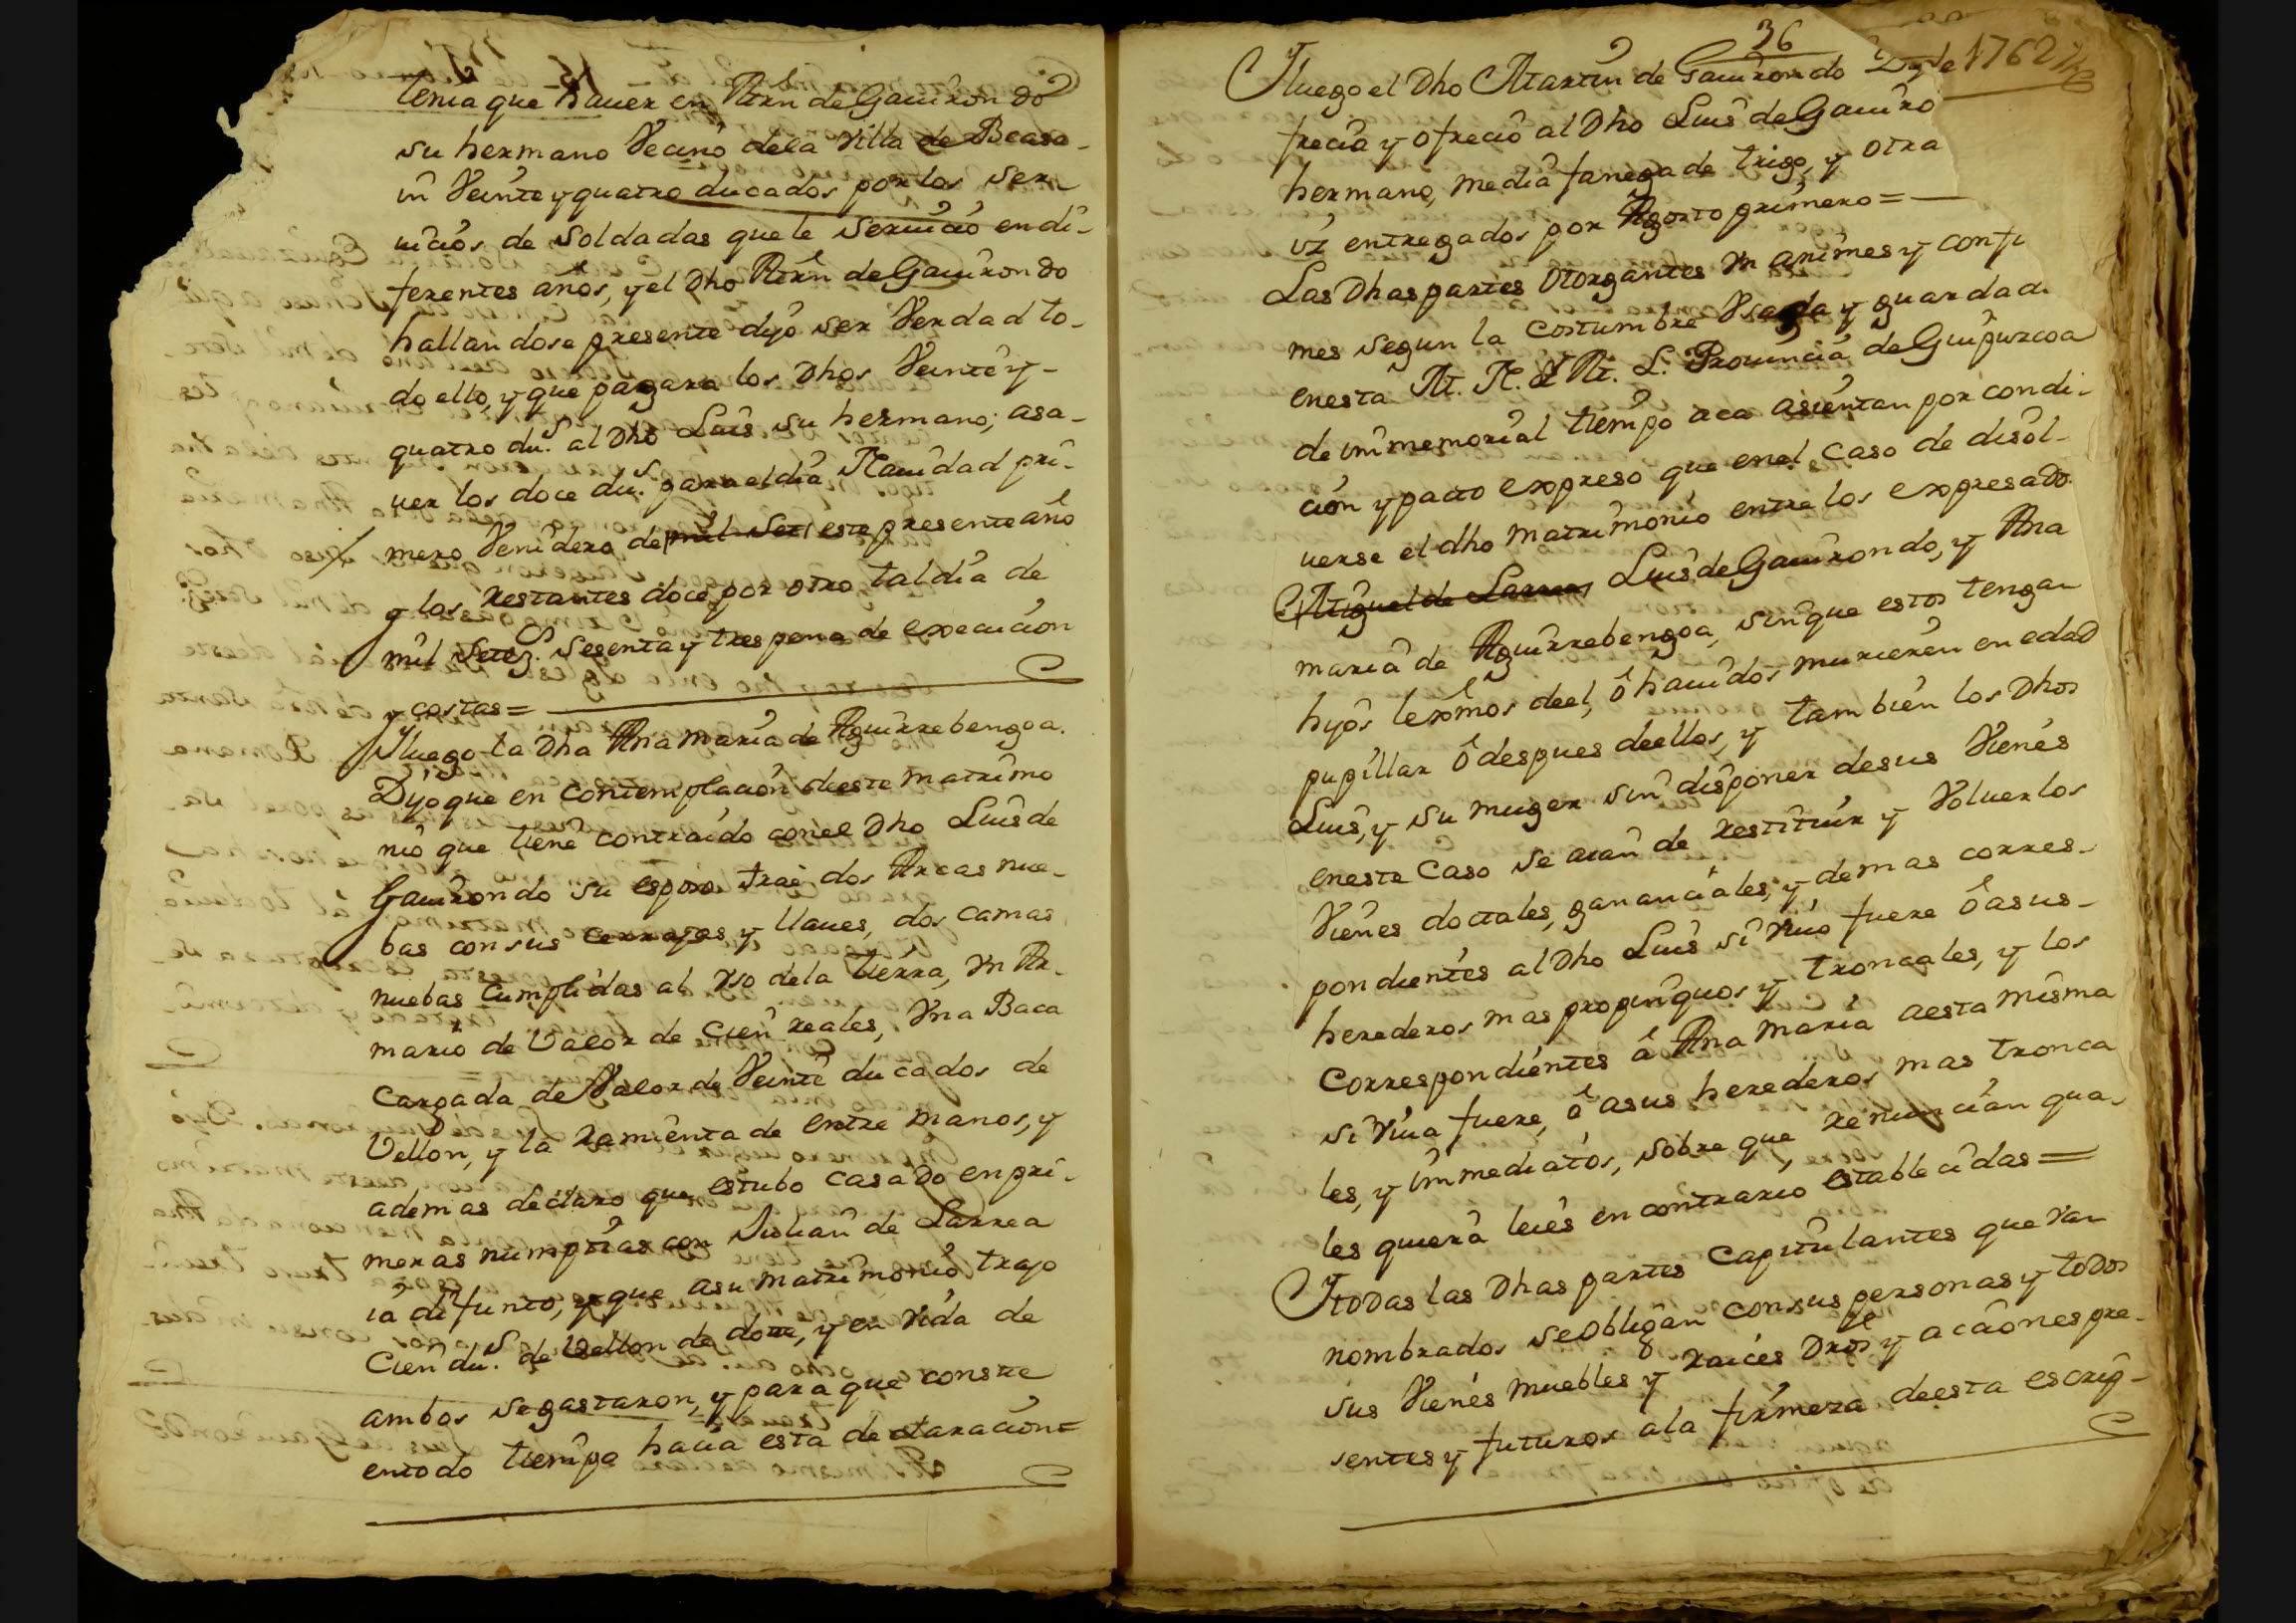 tenia que hauer en Mrn de Gauirondo
su hermano Vecino dela Villa de Beasa-
in Veinte y quatro ducados por los ser
uicios de Soldadas que le Seruicio en di-
ferentes años, y el Dho Mrn de Gauirondo
hallandose presente dijo ser Verdad to-
do ello, y que pagara los Dhos Veinte y-
quatro du.s al Dho Luis su hermano; asa-
uer los doce du.s para el dia Nauidad pri-
mero Venidero de mil Set este presente año
y los restantes doce por otro tal dia de
mil Setez.s Sesenta y tres pena de execucion
y costas=
Y luego la Dha Ana Maria de Aguirrebengoa.
Dijo que en contemplacion deeste matrimo
nio que tiene contraido con el Dho Luis de
Gauirondo su esposo trae dos Arcas nue-
bas con sus cerrajas y llaues, dos camas
nuebas Cumplidas al Vso dela tierra, Vn Ar-
mario de Valor de Cien reales, Vna Baca
Cargada de Valor de Veinte ducados de
Vellon, y la ramienta de entre manos, y
ademas declaro que estubo casado en pri-
meras numptias con Julian de Larrea
ia difunto, y que asu matrimonio trajo
Cien du.s de Vellon de dote, y en Vida de
ambos se gastaron, y para que conste
entodo tiempo hacia esta declaracion=
36
1762
Y luego el Dho Martin de Gauirondo
frecia y ofrecio al Dho Luis de Gauiro
hermano, media fanega de trigo, y otra
iz entregados por Agosto primero=
Las Dhas partes Otorgantes Vn animes y confr
mes segun la costumbre Vsada y guardad
en esta M. N. Y M. L. Prouincia de Guipuzcoa
de immemorial tiempo aca asientan por condi-
cion y pacto expreso que enel Caso de disol-
uerse el dho matrimonio entre los expresado
Miguel de Larrea Luis de Gauirondo, y Ana
maria de Aguirrebengoa, sin que estos tengan
hijos lexmos deel, ô hauidos murieren en edad
pupillar ô despues deellos, y tambien los Dhos
Luis, y su muger sin disponer desus Vienes
eneste Caso se aian de restituir y Voluerlos
Vienes doctales, gananciales, y demas corres-
pondientes al Dho Luis si Viuo fuere ô asus-
herederos mas propinquos y troncales, y los
Correspondientes â Ana Maria aesta misma
si Viua fuere, ô asus herederos mas tronca
les, y immediatos, sobre que, renuncian qua-
les quiera leies en contrario establecidas=
Y todas las Dhas partes Capitulantes que Van
nombrados se obligan consus personas y todos
sus Vienes muebles y raices Dros y acciones pre-
sentes y futuros ala firmeza deesta escrip-